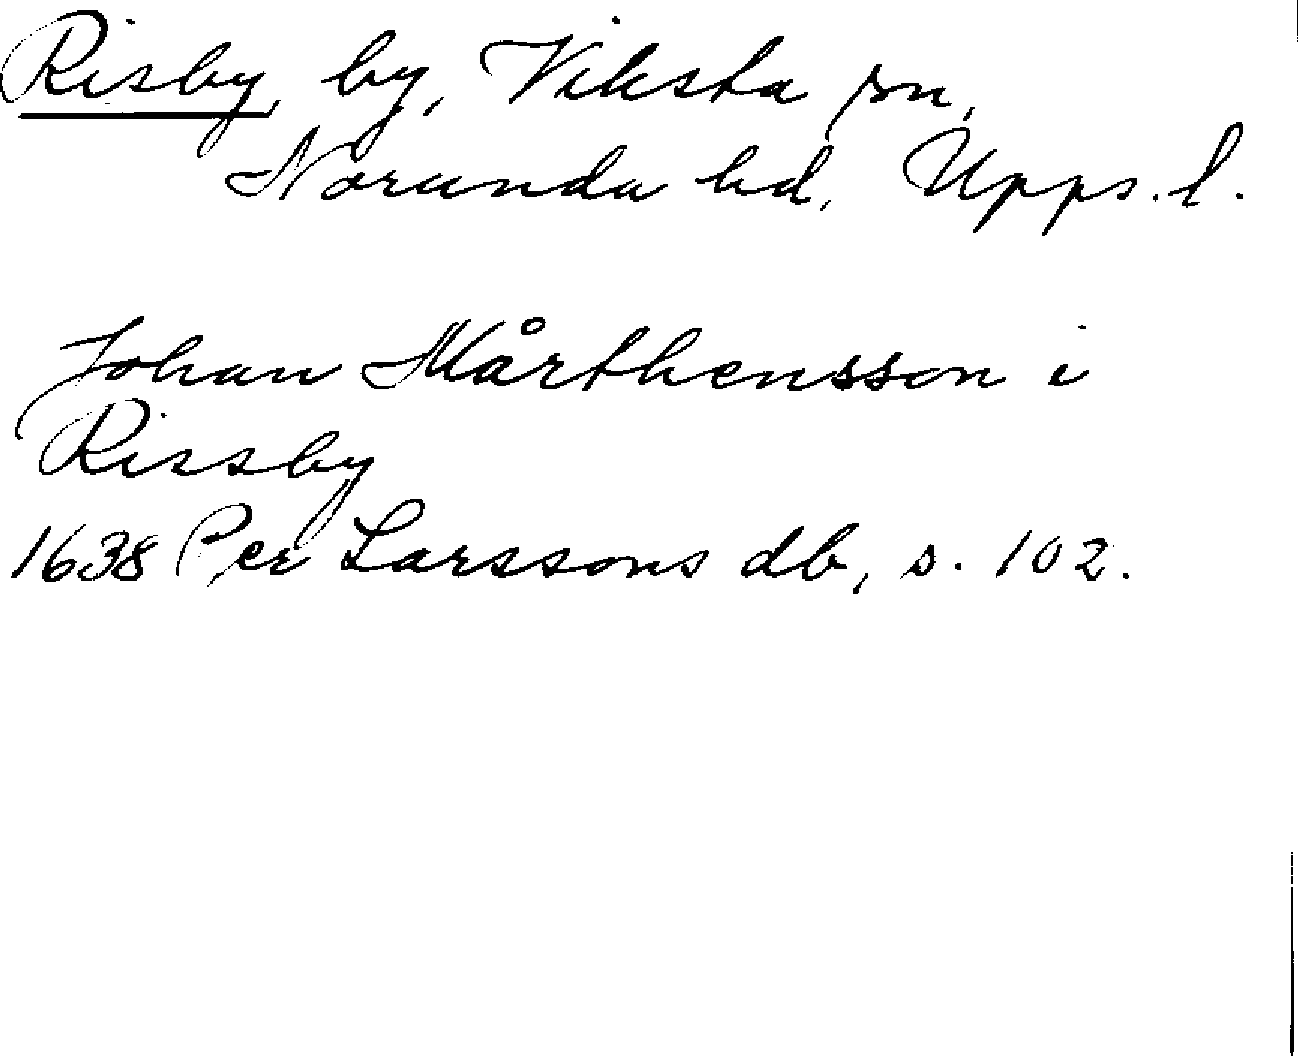 Risby, by, Viksta sn,
Norunda hd, Upps. l.
Johan Mårthensson i
Rissby
1638 Per Larssons db, s. 102.